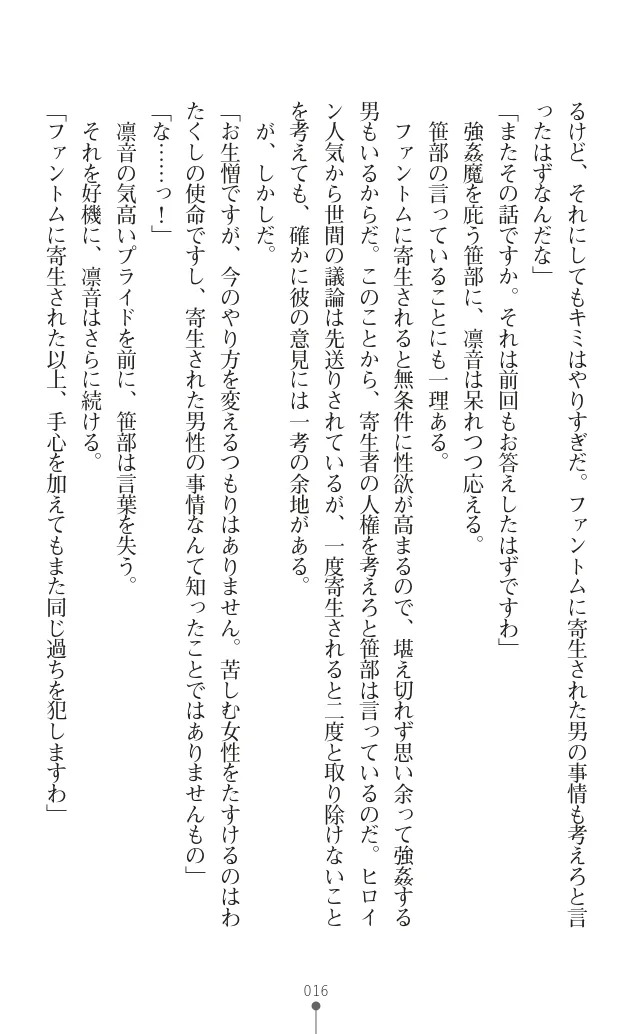 るけど、それにしてもキミはやりすぎだ。ファントムに寄生された男の事情も考えろと言
ったはずなんだな」
「またその話ですか。それは前回もお答えしたはずですわ」
強姦魔を庇う笹部に、凛音は呆れつつ応える。
笹部の言っていることにも一理ある。
ファントムに寄生されると無条件に性欲が高まるので、堪え切れず思い余って強姦する
男もいるからだ。このことから、寄生者の人権を考えろと笹部は言っているのだ。ヒロイ
ン人気から世間の議論は先送りされているが、一度寄生されると二度と取り除けないこと
を考えても、確かに彼の意見には一考の余地がある。
が、しかしだ。
「お生憎ですが、今のやり方を変えるつもりはありません。苦しむ女性をたすけるのはわ
たくしの使命ですし、寄生された男性の事情なんて知ったことではありませんもの」
「な……っ！」
凛音の気高いプライドを前に、笹部は言葉を失う。
それを好機に、凛音はさらに続ける。
「ファントムに寄生された以上、手心を加えてもまた同じ過ちを犯しますわ」
016